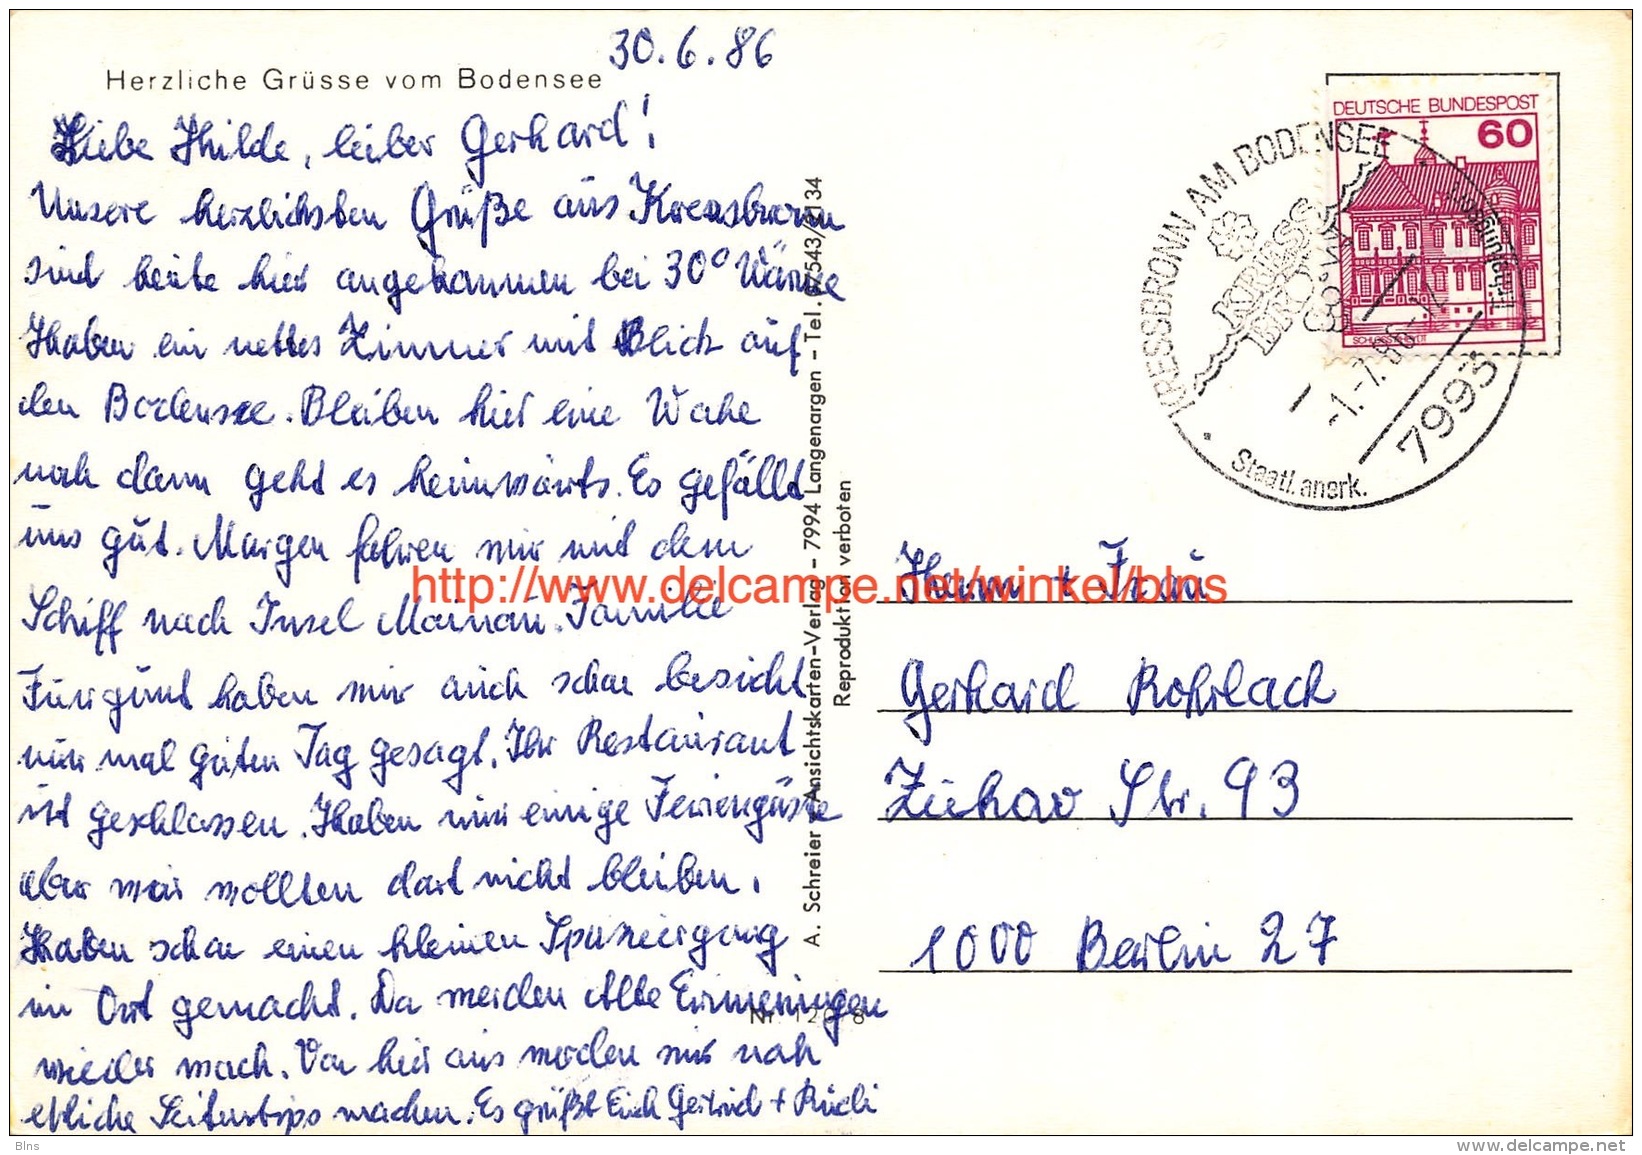 30.6.86
Herzliche Grüsse vom Bodensee
Liebe Hilde, lieber Gerhard!
Unsere herzlichsten Grüße aus Kressbronn
sind heute hier angekommen bei 30° Wärme
Haben ein nettes Zimmer mit Blick auf
den Bodensee. Bleiben hier eine Woche
noch dann geht es heimwärts. Es gefällt
uns gut. Morgen fahren wir mit dem
Schiff nach Insel Mainau. Familie
haben wir auch schon besucht
nur mal guten Tag gesagt. Ihr Restaurant
ist geschlossen. Haben nur einige Feriengäste
aber wir wollten dort nicht bleiben.
Haben schon einen kleinen Spaziergang
im Ort gemacht. Da werden alte Erinnerungen
wieder wach. Von hier aus werden wir noch
etliche Seitentips machen. Es grüßt Euch Gertrud + Rudi
A. Schreier Ansichtskarten-Verlag - 7994 Langenargen - Tel. 07543/2134
Reproduktion verboten
Nr. 120/8
DEUTSCHE BUNDESPOST
60
KRESSBRONN AM BODENSEE
KRESS
BRONN
-1.-7.86-17
7993
Staatl. anerk.
Herrn + Frau
Gerhard Rohrbach
Str. 93
1000 Berlin 27
http://www.delcampe.net/winkel/blns
Blns
www.delcampe.net